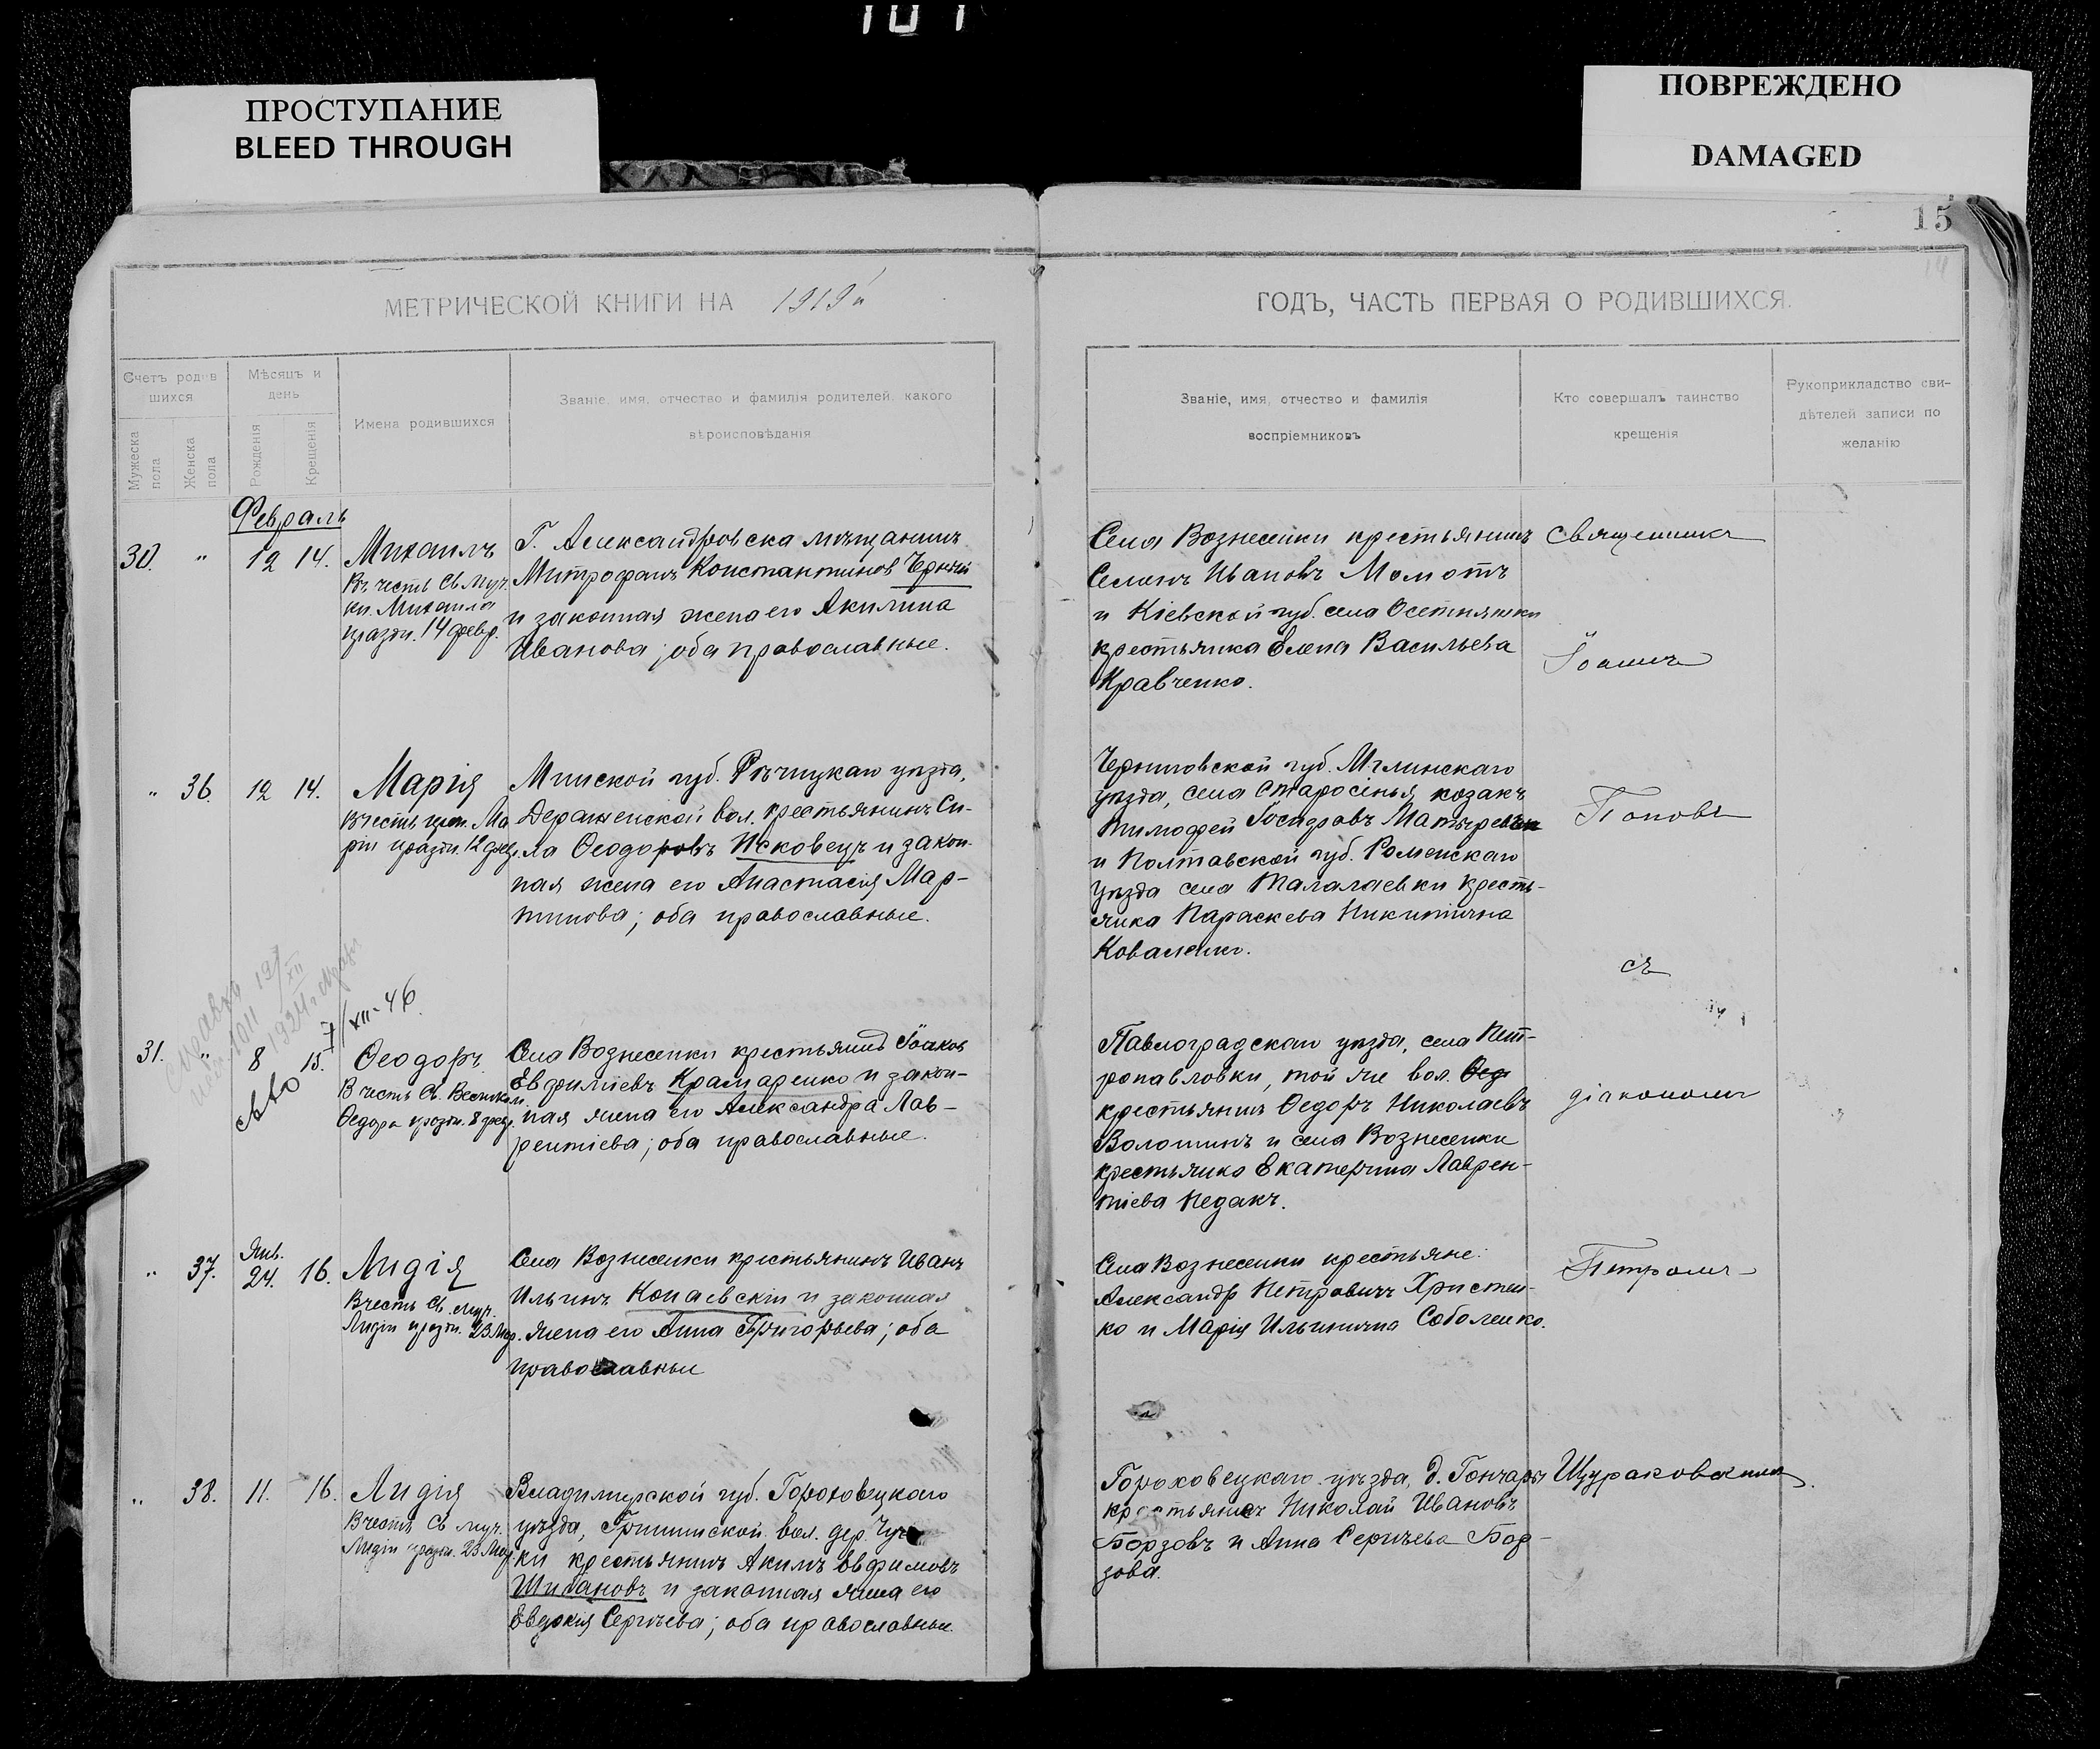 101
ПРОСТУПАНИЕ
BLEED THROUGH
ПОВРЕЖДЕНО
DAMAGED
15
МЕТРИЧЕСКОЙ КНИГИ НА 1919й
ГОДЪ, ЧАСТЬ ПЕРВАЯ О РОДИВШИХСЯ.
Счетъ родив
шихся
Мужеска
пола
Женска
пола
Мѣсяцъ и
день
Рожденія
Крещенія
Имена родившихся
Званіе, имя, отчество и фамилія родителей, какого
вѣроисповѣданія
Званіе, имя, отчество и фамилія
воспріемниковъ
Кто совершалъ таинство
крещенія
Рукоприкладство сви-
дѣтелей записи по
желанію
Февраль
30. " 12 14. Михаилъ
Въ честь Св. муч.
кн. Михаила
праздн. 14 февр.
Г. Александровска мѣщанинъ
Митрофанъ Константинов Черный
и законная жена его Акилина
Иванова; оба православные.
Села Вознесенки крестьянинъ
Семенъ Ивановъ Момотъ
и Кіевской губ. села Осетняжки
крестьянка Елена Васильева
Кравченко.
Священникъ
Іоаннъ
" 36. 12 14. Марія
В честь прп. Ма
ріи праздн. 12 февр.
Минской губ. Рѣчицкаго уѣзда,
Деражненской вол. крестьянинъ Си-
ла Ѳеодоровъ Исковецъ и закон-
ная жена его Анастасія Мар-
тинова; оба православные.
Черниговской губ. Мглинскаго
уѣзда, села Старосѣнья козакъ
Тимофей
и Полтавской губ. Роменскаго
уѣзда села Талалаевки кресть-
янка Параскева Никитична
Коваленко.
Поповъ
съ
Справка
7/XII-46
31. " 8 15. Ѳеодоръ
св-во
В честь Св. Великом.
Ѳедора праздн. 8 февр.
Села Вознесенки крестьянинъ Іаковъ
Евфиміевъ Крамаренко и закон-
ная жена его Александра Лав-
рентіева; оба православные.
Павлоградскаго уѣзда, села Пет-
ропавловки, той же вол. Ѳед
крестьянинъ Ѳедоръ Николаевъ
Волошинъ и села Вознесенки
крестьянка Екатерина Лаврен-
тіева Педакъ.
діакономъ
Янв.
" 37. 24. 16. Лидія
В честь Св. муч.
Лидіи праздн. 23 Мар.
Села Вознесенки крестьянинъ Иванъ
Ильинъ Копаевскій и законная
жена его Анна Григорьева; оба
православные
Села Вознесенки крестьяне:
Александр Петровичъ Христен-
ко и Марія Ильинична Соболенко.
Петромъ
" 38. 11. 16. Лидія
В честь Св муч.
Лидіи праздн. 23 Мар.
Владимирской губ. Гороховецкаго
уѣзда, Гришинской вол. дер.
ки крестьянинъ Акимъ Евфимовъ
Шибановъ и законная жена его
Евдокія Сергѣева; оба православные.
Гороховецкаго уѣзда, д. Гончары
крестьянинъ Николай Ивановъ
Борзовъ и Анна Сергѣева Бор-
зова.
Щураковскимъ.